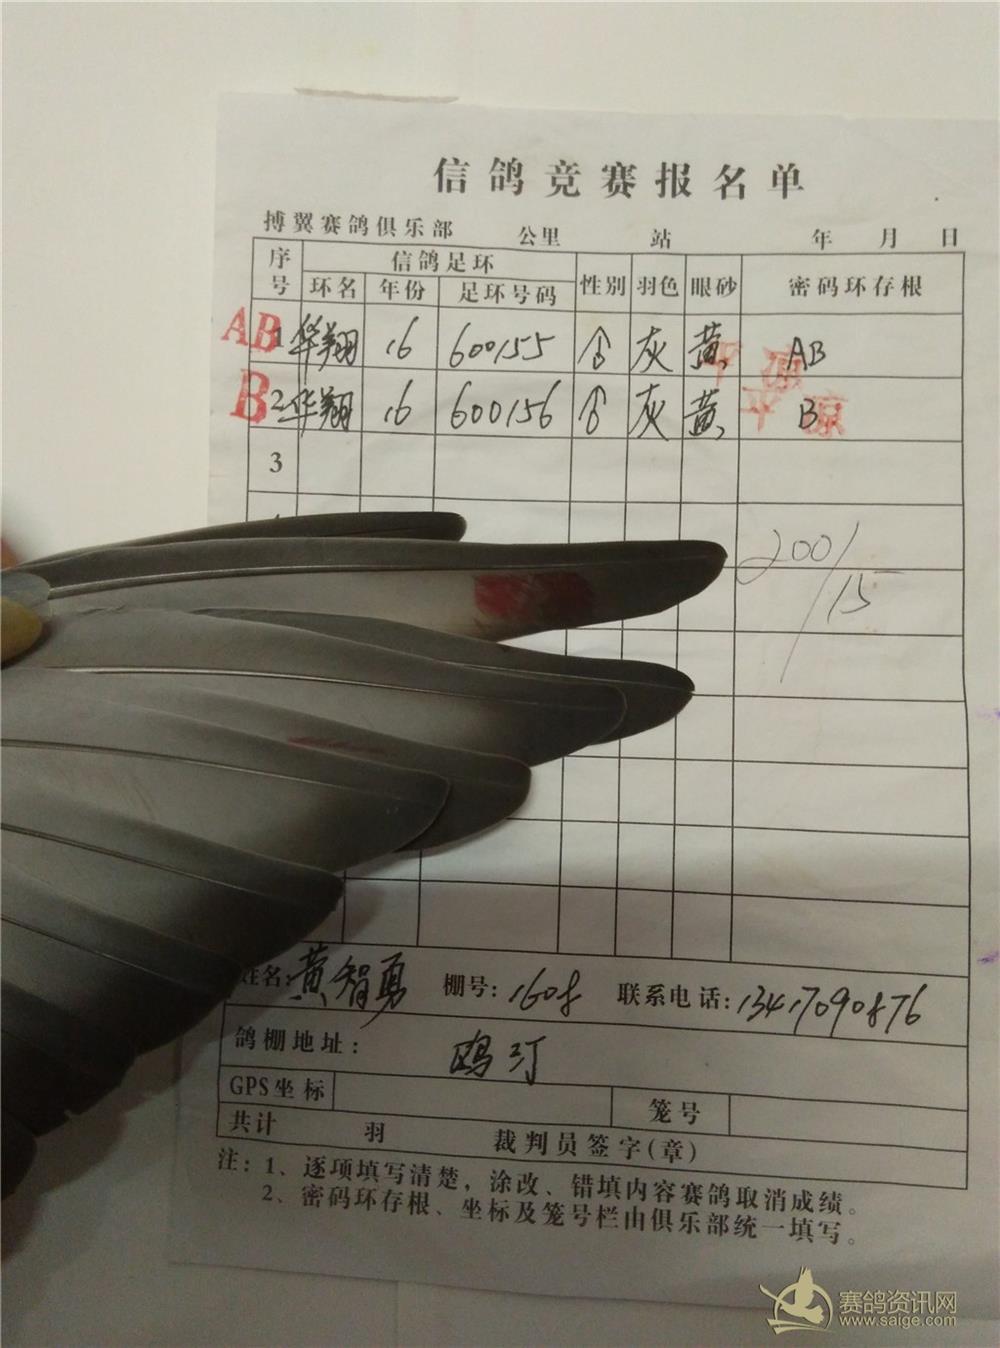 信鸽竞赛报名单
搏翼赛鸽俱乐部 公里 站 年 月 日
序号 信鸽足环 性别 羽色 眼砂 密码环存根
环名 年份 足环号码
AB 1 华翔 16 600155 灰 黄 平凉 AB
B 2 华翔 16 600156 灰 黄 平凉 B
3
200/15
姓名:黄智勇 棚号:1608 联系电话:13417090876
鸽棚地址: 鸥汀
GPS坐标 笼号
共计 羽 裁判员签字(章)
注:1、逐项填写清楚,涂改、错填内容赛鸽取消成绩。
2、密码环存根、坐标及笼号栏由俱乐部统一填写。
赛鸽资讯网
www.saige.com